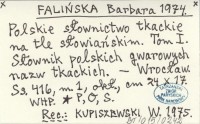 FALIŃSKA Barbara 1974.
Polskie słownictwo tkackie
na tle słowiańskim. Tom. I.
Słownik polskich gwarowych
nazw tkackich. — Wrocław
Ss 416, m. 1, cm 24 x 17
WHP. * P, O, S.
Rec.: KUPISZEWSKI W. 1975.